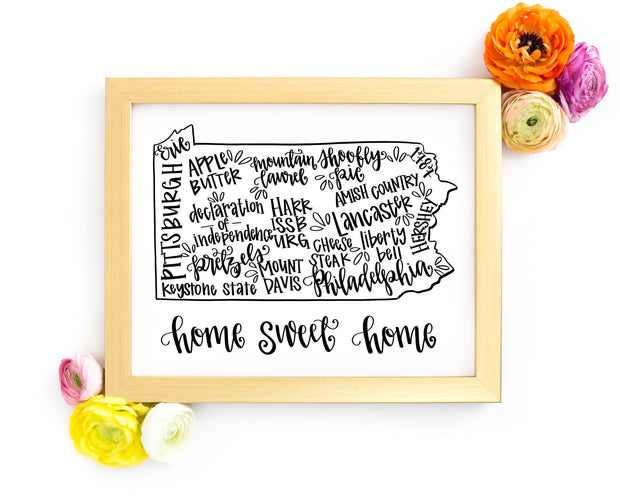 Erie
PITTSBURGH
APPLE
BUTTER
mountain
laurel
shoofly
pie
1787
AMISH COUNTRY
declaration
of
independence
HARR
ISSB
URG
Lancaster
HERSHEY
pretzels
CHEESE
STEAK
liberty
bell
MOUNT
DAVIS
Philadelphia
keystone state
home sweet home